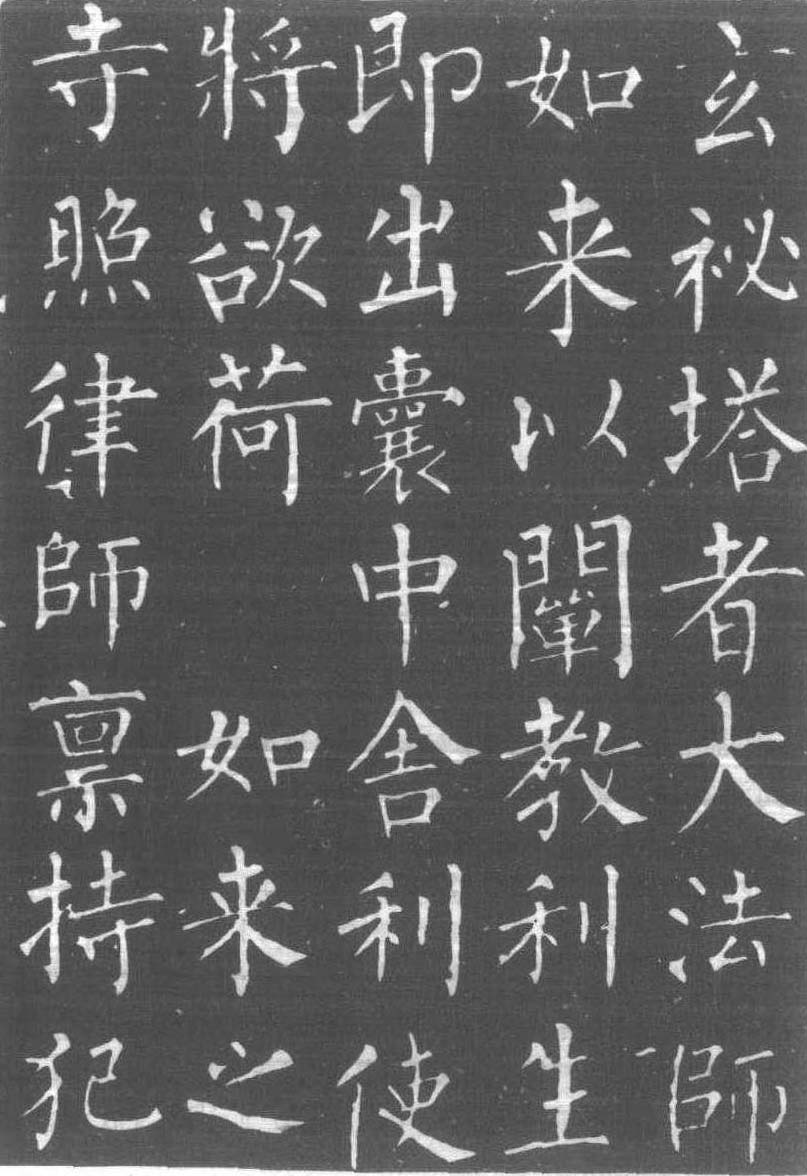 玄祕塔者大法師
如来以闡教利生
即出囊中舍利使
將欲荷 如来之
寺照律師禀持犯